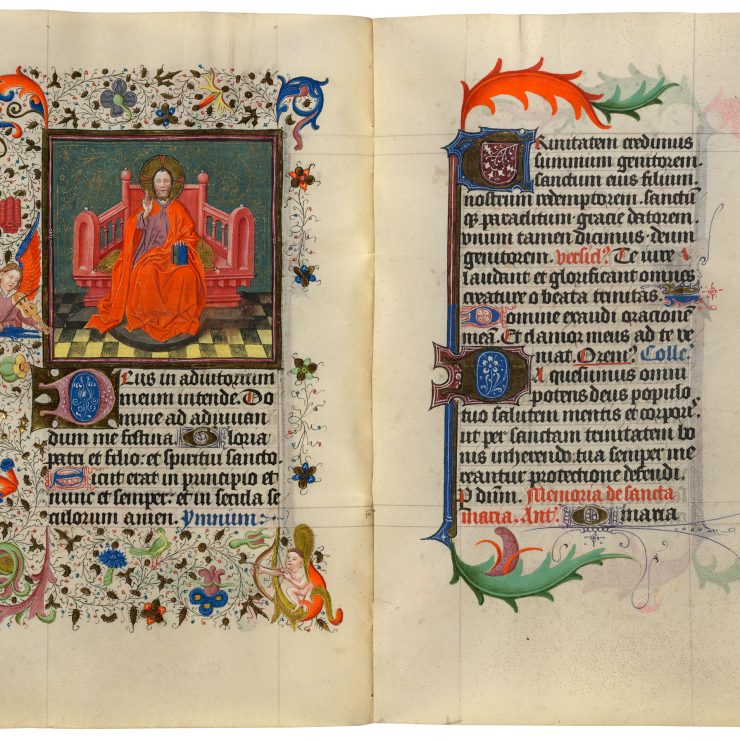 Eus in adiutorium
meum intende. Do
mine ad adiuuan
dum me festina. Gloria
patri et filio: et spiritui sancto.
Sicut erat in principio et
nunc et semper: et in secula se
culorum amen. Ymnum:
Trinitatem credimus
summum genitorem.
sanctum eius filium.
nostrum redemptorem. sanctũ
q̃ paraclitum gracie datorem.
vnum tamen dicimus. deum
genitorem. versic̃. Te iure
laudant et glorificant omnes
creature o beata trinitas.
Domine exaudi oracionẽ
meã. Et clamor meus ad te ve
niat. Orem̃ Colle.
quesumus omni
potens deus populo
tuo salutem mentis et corpor̃
ut per sanctam trinitatem bo
nis inherendo. tua semper me
reantur protectione defendi.
P dñm. Memoria de sancta
maria. Ant̃. O maria